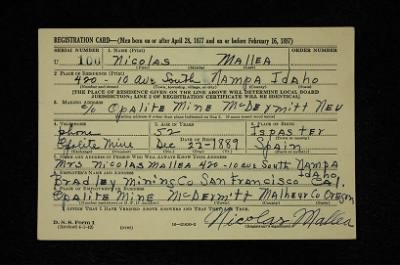 REGISTRATION CARD—(Men born on or after April 28, 1877 and on or before February 16, 1897)
SERIAL NUMBER 1. NAME (Print) ORDER NUMBER
U 100 Nicolas Mallea
(First) (Middle) (Last)
2. PLACE OF RESIDENCE (Print)
420 - 10 ave South Nampa Idaho
(Number and street) (Town, township, village, or city) (County) (State)
[THE PLACE OF RESIDENCE GIVEN ON THE LINE ABOVE WILL DETERMINE LOCAL BOARD
JURISDICTION; LINE 2 OF REGISTRATION CERTIFICATE WILL BE IDENTICAL]
3. MAILING ADDRESS
c/o Opalite Mine McDermitt Nev
4. TELEPHONE 5. AGE IN YEARS 6. PLACE OF BIRTH
phone 52 Ispaster
DATE OF BIRTH
Opalite Mine Dec 22-1889 Spain
(Exchange) (Number) (Mo.) (Day) (Yr.) (State or country)
7. NAME AND ADDRESS OF PERSON WHO WILL ALWAYS KNOW YOUR ADDRESS
Mrs Nicolas Mallea 420-10 ave South Nampa
Idaho
8. EMPLOYER'S NAME AND ADDRESS
Bradley Mining Co San Francisco Cal.
9. PLACE OF EMPLOYMENT OR BUSINESS
Opalite Mine McDermitt Malheur Co Oregon
(Number and street or R. F. D. number) (Town) (County) (State)
I AFFIRM THAT I HAVE VERIFIED ABOVE ANSWERS AND THAT THEY ARE TRUE.
D. S. S. Form 1
Nicolas Mallea